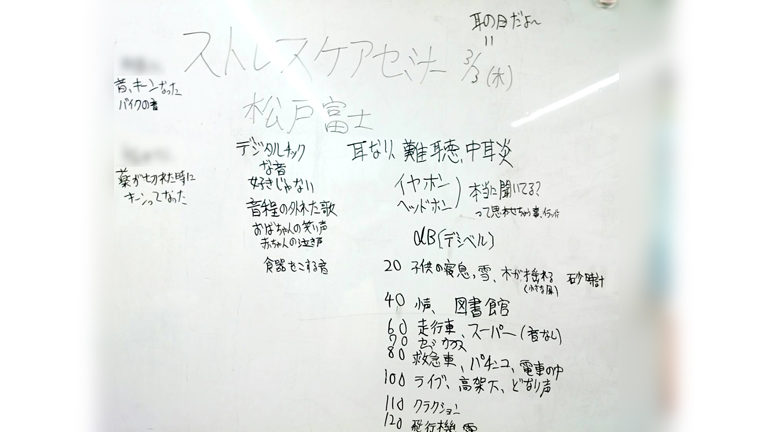 耳の日だよ〜
〃
ストレスケアセミナー 3/3(木)
音、キーンなった
バイクの音
松戸富士
デジタルチック
な音
好きじゃない
音程の外れた歌
おばちゃんの笑い声
赤ちゃんの泣き声
食器をこする音
薬が切れた時に
キーンってなった
耳なり、難聴、中耳炎
イヤホン
ヘッドホン
) 本当に聞いてる?
って思わせちゃう事、
dB(デシベル)
20 子供の寝息、雪、木が揺れる 砂時計
40 小声、図書館
60 走行車、スーパー(音なし)
70
80 救急車、パチンコ、電車の中
100 ライブ、高架下、どなり声
110 クラクション
120 飛行機、雷